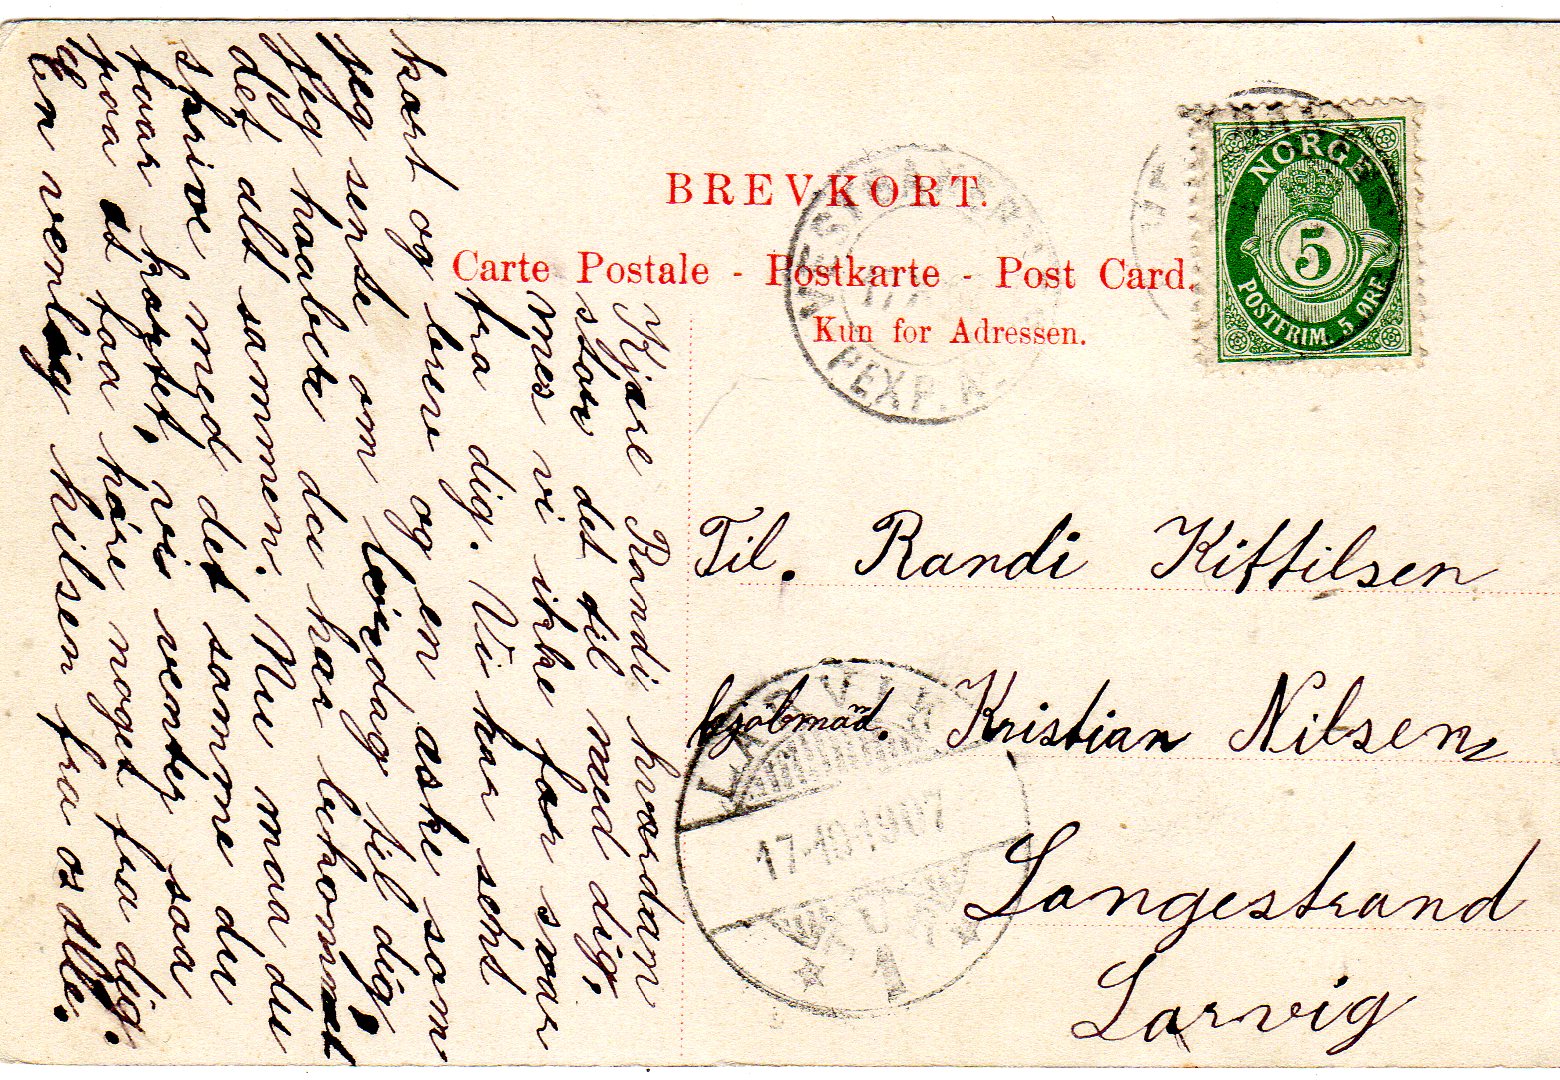 BREVKORT.
Carte Postale - Postkarte - Post Card.
Kun for Adressen.
NORGE
5
POSTFRIM. 5 ØRE
VESTFOLDBANENS
PEXP. N
LARVIK
17-10-1907
1
Til. Randi Kittilsen
hjolmåd. Kristian Nilsen
Langestrand
Larvig
Kjære Randi hvordan
staar det til med dig,
mes vi ikke faar svar
fra dig. Vi har send
kart og brev og en aske som
jeg sente om lørdag til dig,
jeg haabete du har bekommet
det alt sammen. Nu maa du
skrive med det samme du
faar kortet, vi venter saa
paa at faa høre noget fra dig.
En venlig hilsen fra os alle.